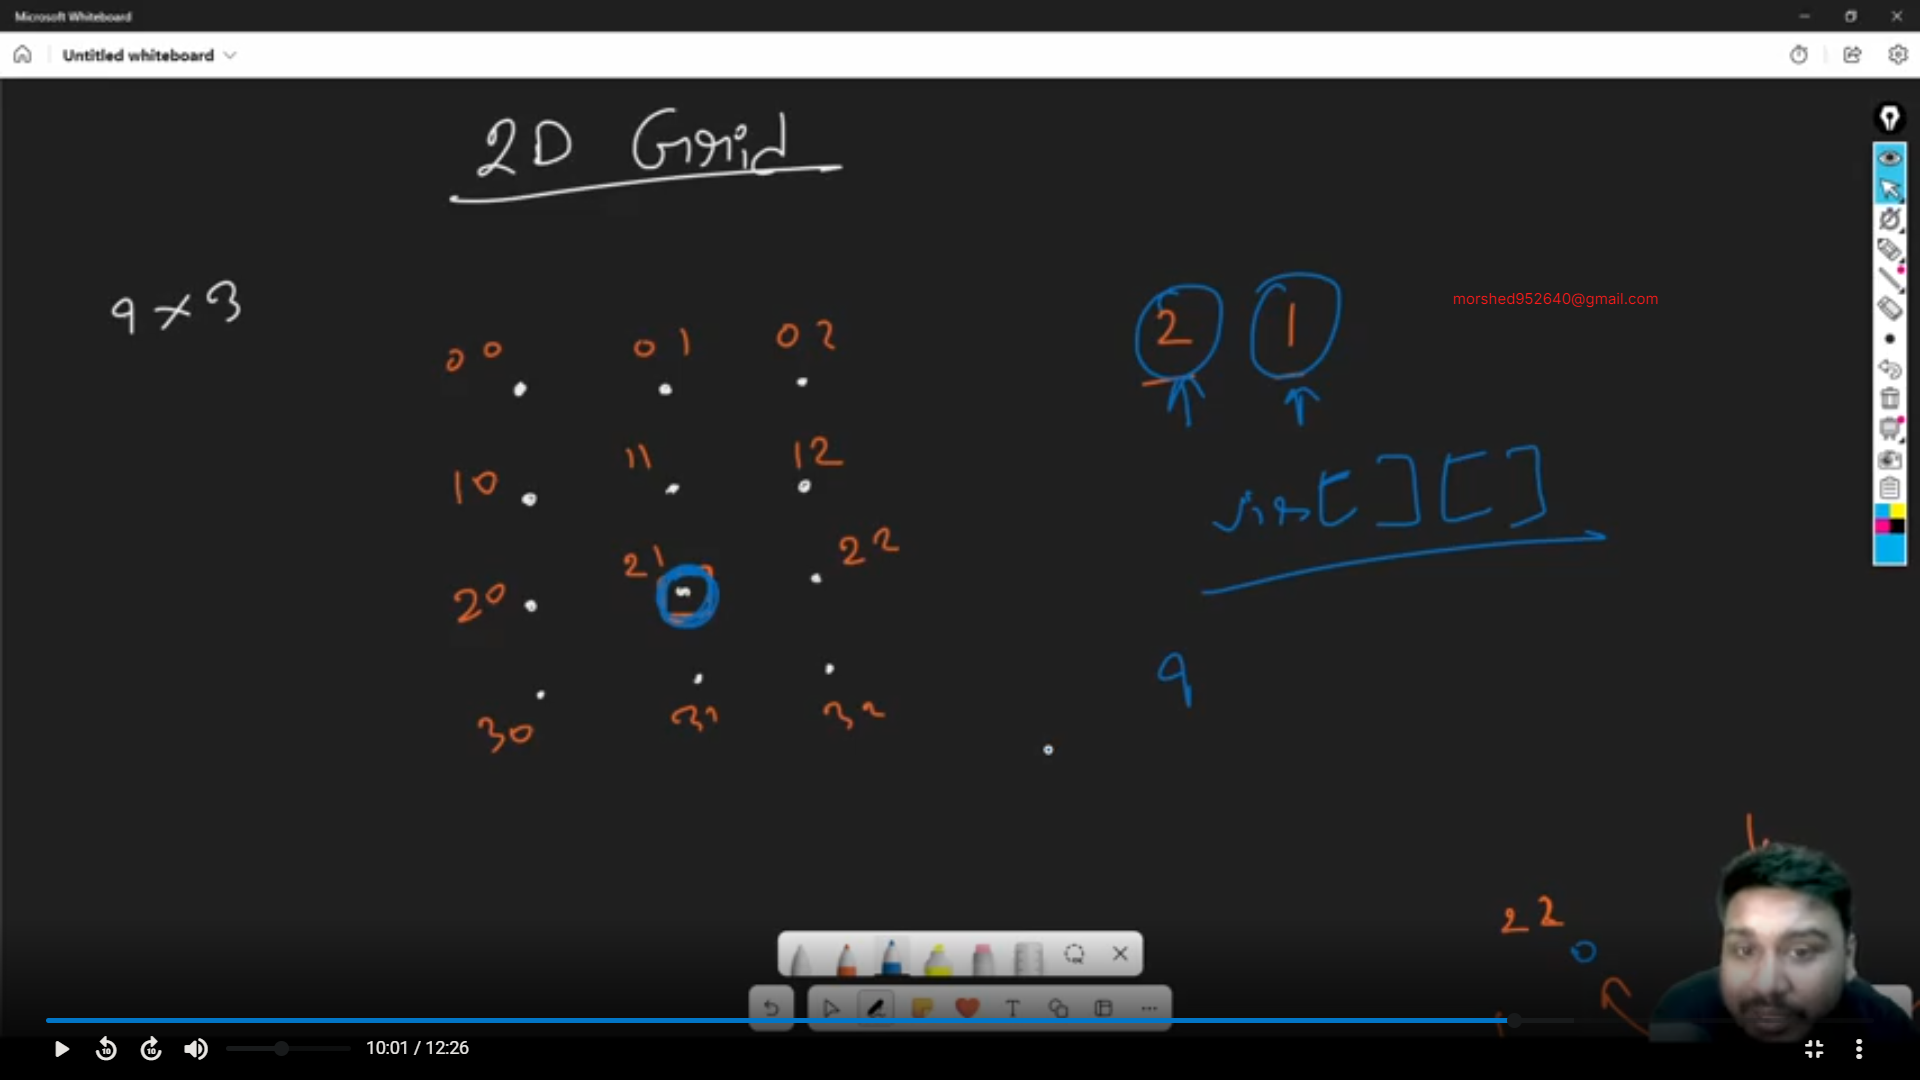 Microsoft Whiteboard
Untitled whiteboard
2D Grid
9 × 3
00 01 02
10 11 12
20 21 22
30 31 32
2 1
morshed952640@gmail.com
vis[][]
9
22
10 10 10:01 / 12:26